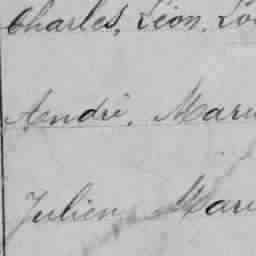 Charles, Léon, Lo
André, Marie
Julien Marie